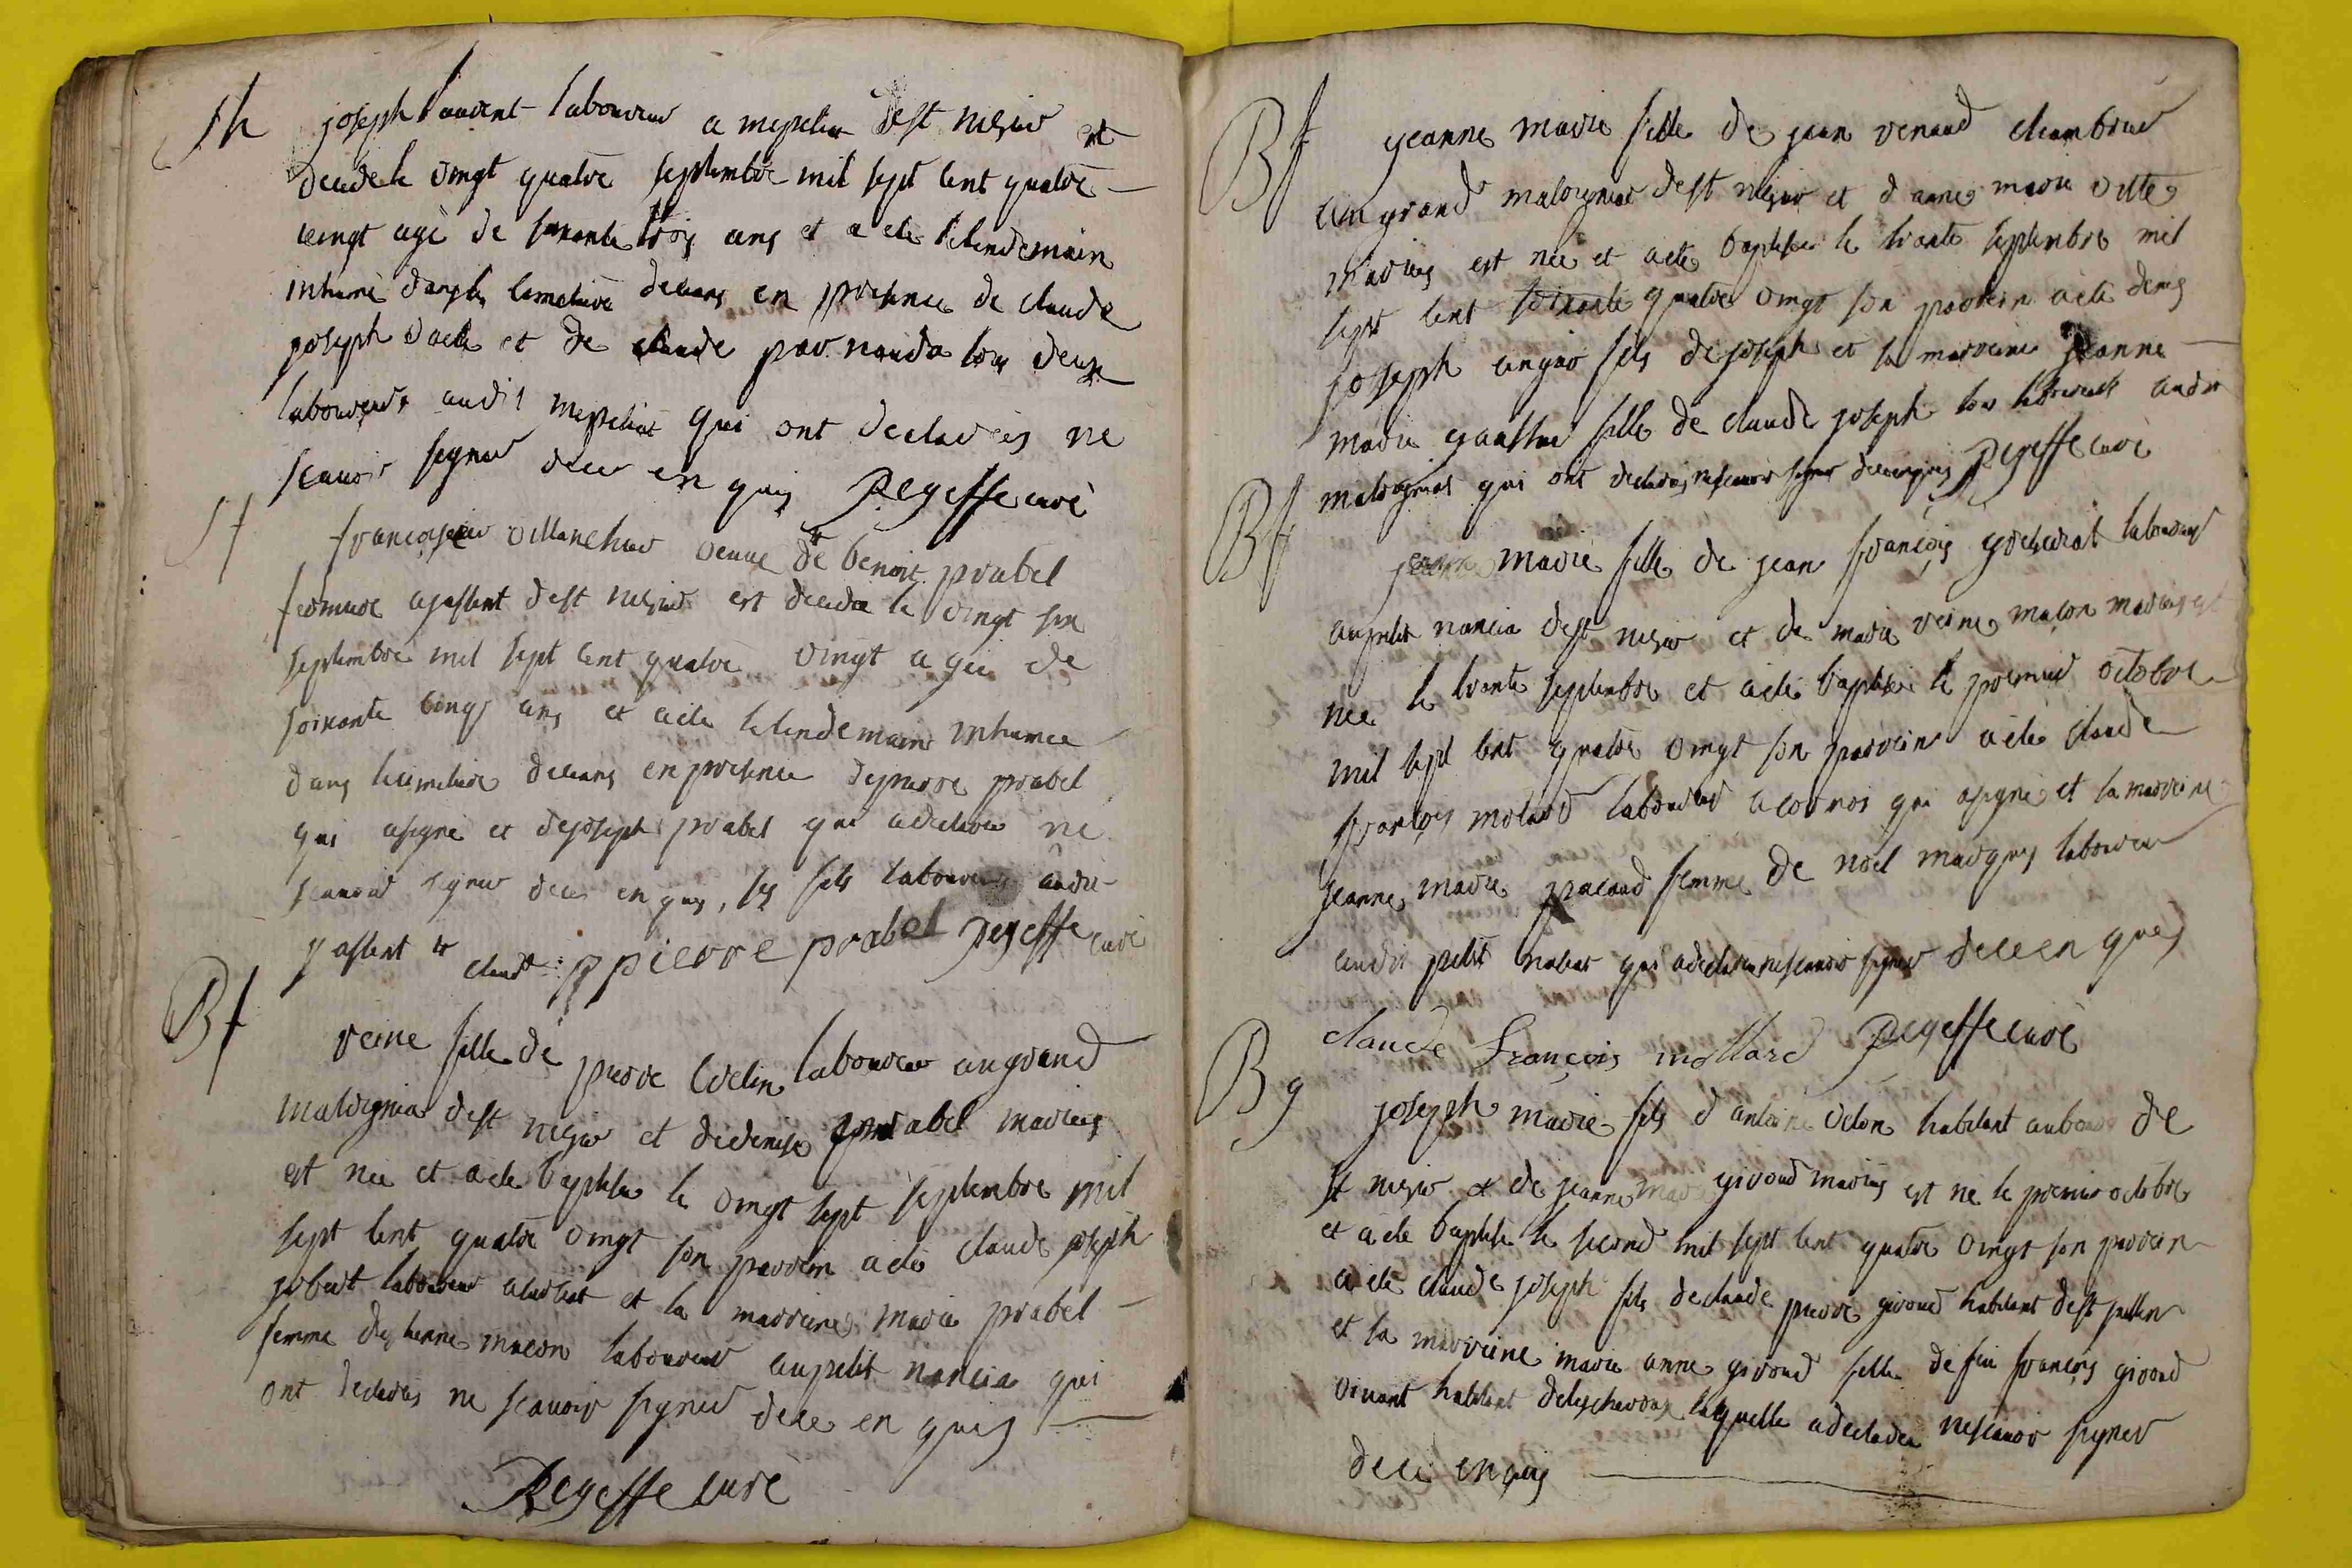 Sh joseph laurent laboureur a mepeliat dest nizier est
decede le vingt quatre septembre mil sept cent quatre
vingt agé de soixante trois ans et a ete le lendemain
inhumé dans le cimetiere deceans en presence de claude
joseph et de claude tous deux
laboureurs audit mepeliat qui ont declarés ne
scavoir signer de ce enquis Regeffe curé
Sf françoise villanchur veuve de benoit prabel
fermiere a jassent dest nizier est decedee le vingt six
septembre mil sept cent quatre vingt agée de
soixante cinq ans et a ete le lendemain inhumee
dans le cimetiere deceans en presence de pierre prabel
qui a signé et de joseph prabel qui a declare ne
scavoir signer de ce enquis, ses fils laboureurs audit
jassent p pierre prabel Regeffe curé
Bf reine fille de pierre laboureur au grand
malvegniat dest nizier et de denise prabel mariés
est née et a ete baptisée le vingt sept septembre mil
sept cent quatre vingt son parrein a eté claude joseph
jobert laboureur et la marreine marie prabel
femme detienne macon laboureur au petit nancia qui
ont declarés ne scavoir signer de ce enquis
Regeffe curé
Bf jeanne marie fille de jean renaud chambrier
au grand malvegniat dest nizier et d anne marie vitte
mariés est née et a ete baptisée le trante septembre mil
sept cent quatre vingt son parrein a eté denis
joseph fils de joseph et la marreine jeanne
marie fille de claude joseph tous laboureurs audit
malvegniat qui ont declarés ne scavoir signer de ce enquis Regeffe curé
Bf jeanne marie fille de jean françois laboureur
au petit nancia dest nizier et de marie reine maçon mariés est
née le trante septembre et a eté baptisée le premier octobre
mil sept cent quatre vingt son parrein a eté claude
françois molard laboureur a cormos qui a signé et la marreine
jeanne marie pacaud femme de noel marguy laboureur
audit petit nancia qui a declaré ne scavoir signer de ce enquis
claude François mollard Regeffe curé
Bg joseph marie fils d antoine velon habitant au bourg de
st nizier et de jeanne marie giroud mariés est né le premier octobre
et a ete baptisé le second mil sept cent quatre vingt son parrein
a eté claude joseph fils de claude pierre giroud habitant dest jullien
et la marreine marie anne giroud fille de feu françois giroud
vivant habitant laquelle a declarée ne scavoir signer
de ce enquis